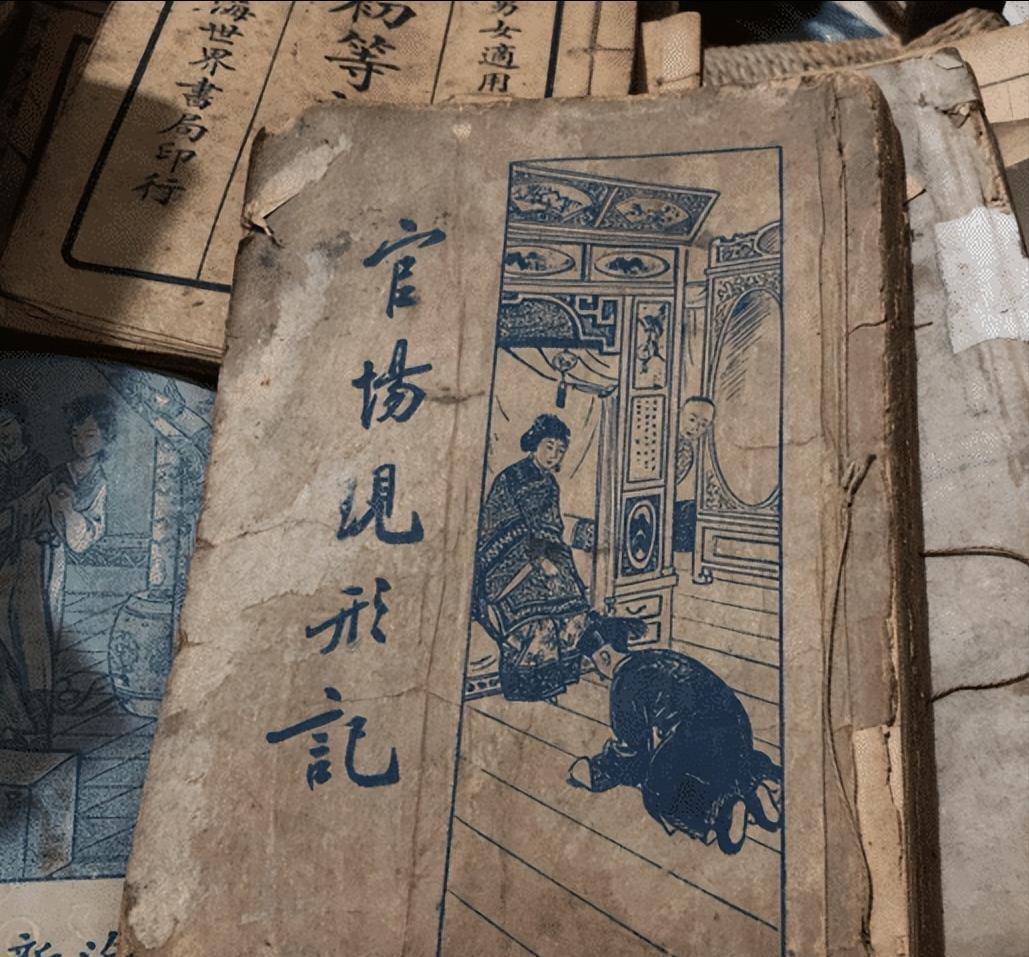 官場現形記
男女適用
初等
海世界書局印行